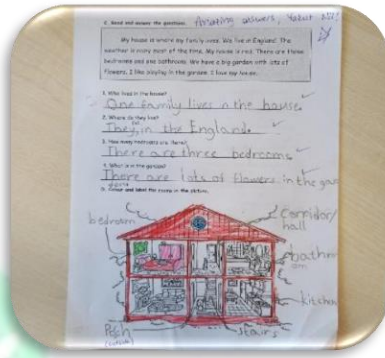 C. Read and answer the questions. Amazing answers, Yakut Ali!
My house is where my family lives. We live in England. The
weather is rainy most of the time. My house is red. There are three
bedrooms and one bathroom. We have a big garden with lots of
flowers. I like playing in the garden. I love my house.
1. Who lives in the house?
One family lives in the house.
2. Where do they live?
They, in the England.
3. How many bedrooms are there?
There are three bedrooms
4. What is in the garden?
There are lots of flowers in the gar
D. Colour and label the rooms in the picture.
bedroom
corridor/
hall
bathro
om
kitchen
stairs